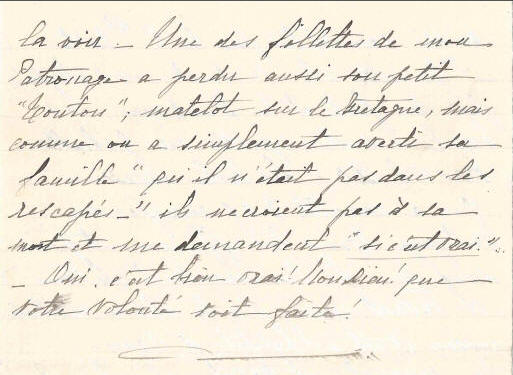 la voir _ Une des fillettes de mon
Patronage a perdu aussi son petit
"Tonton"; matelot sur le Bretagne, mais
comme on a simplement averti sa
famille "qu'il n'était pas dans les
rescapés_" ils ne croient pas à sa
mort et me demandent "si c'est vrai."..
_ Oui. c'est bien vrai! Mon Dieu! que
votre volonté soit faite!